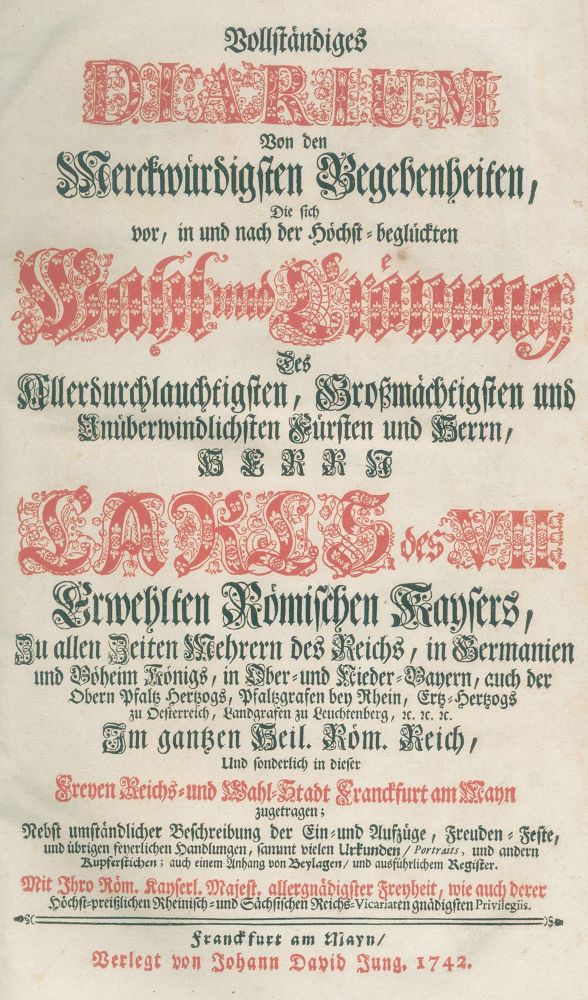 Vollständiges
DIARIUM
Von den
Merckwürdigsten Begebenheiten,
Die sich
vor, in und nach der Höchst-beglückten
Wahl und Croͤnung,
Des
Allerdurchlauchtigsten, Großmächtigsten und
Unüberwindlichsten Fürsten und Herrn,
HERRN
CARLS des VII.
Erwehlten Römischen Kaysers,
Zu allen Zeiten Mehrern des Reichs, in Germanien
und Böheim Königs, in Ober-und Nieder-Bayern, auch der
Obern Pfaltz Hertzogs, Pfaltzgrafen bey Rhein, Ertz-Hertzogs
zu Oesterreich, Landgrafen zu Leuchtenberg, ꝛc. ꝛc. ꝛc.
Im gantzen Heil. Röm. Reich,
Und sonderlich in dieser
Freyen Reichs-und Wahl-Stadt Franckfurt am Mayn
zugetragen;
Nebst umständlicher Beschreibung der Ein-und Aufzüge, Freuden-Feste,
und übrigen feyerlichen Handlungen, sammt vielen Urkunden/ Portraits, und andern
Kupferstichen; auch einem Anhang von Beylagen/ und ausführlichem Register.
Mit Ihro Röm. Kayserl. Majest. allergnädigster Freyheit, wie auch derer
Höchst-preißlichen Rheinisch-und Sächsischen Reichs-Vicariaten gnädigsten Privilegiis.
Franckfurt am Mayn/
Verlegt von Johann David Jung. 1742.